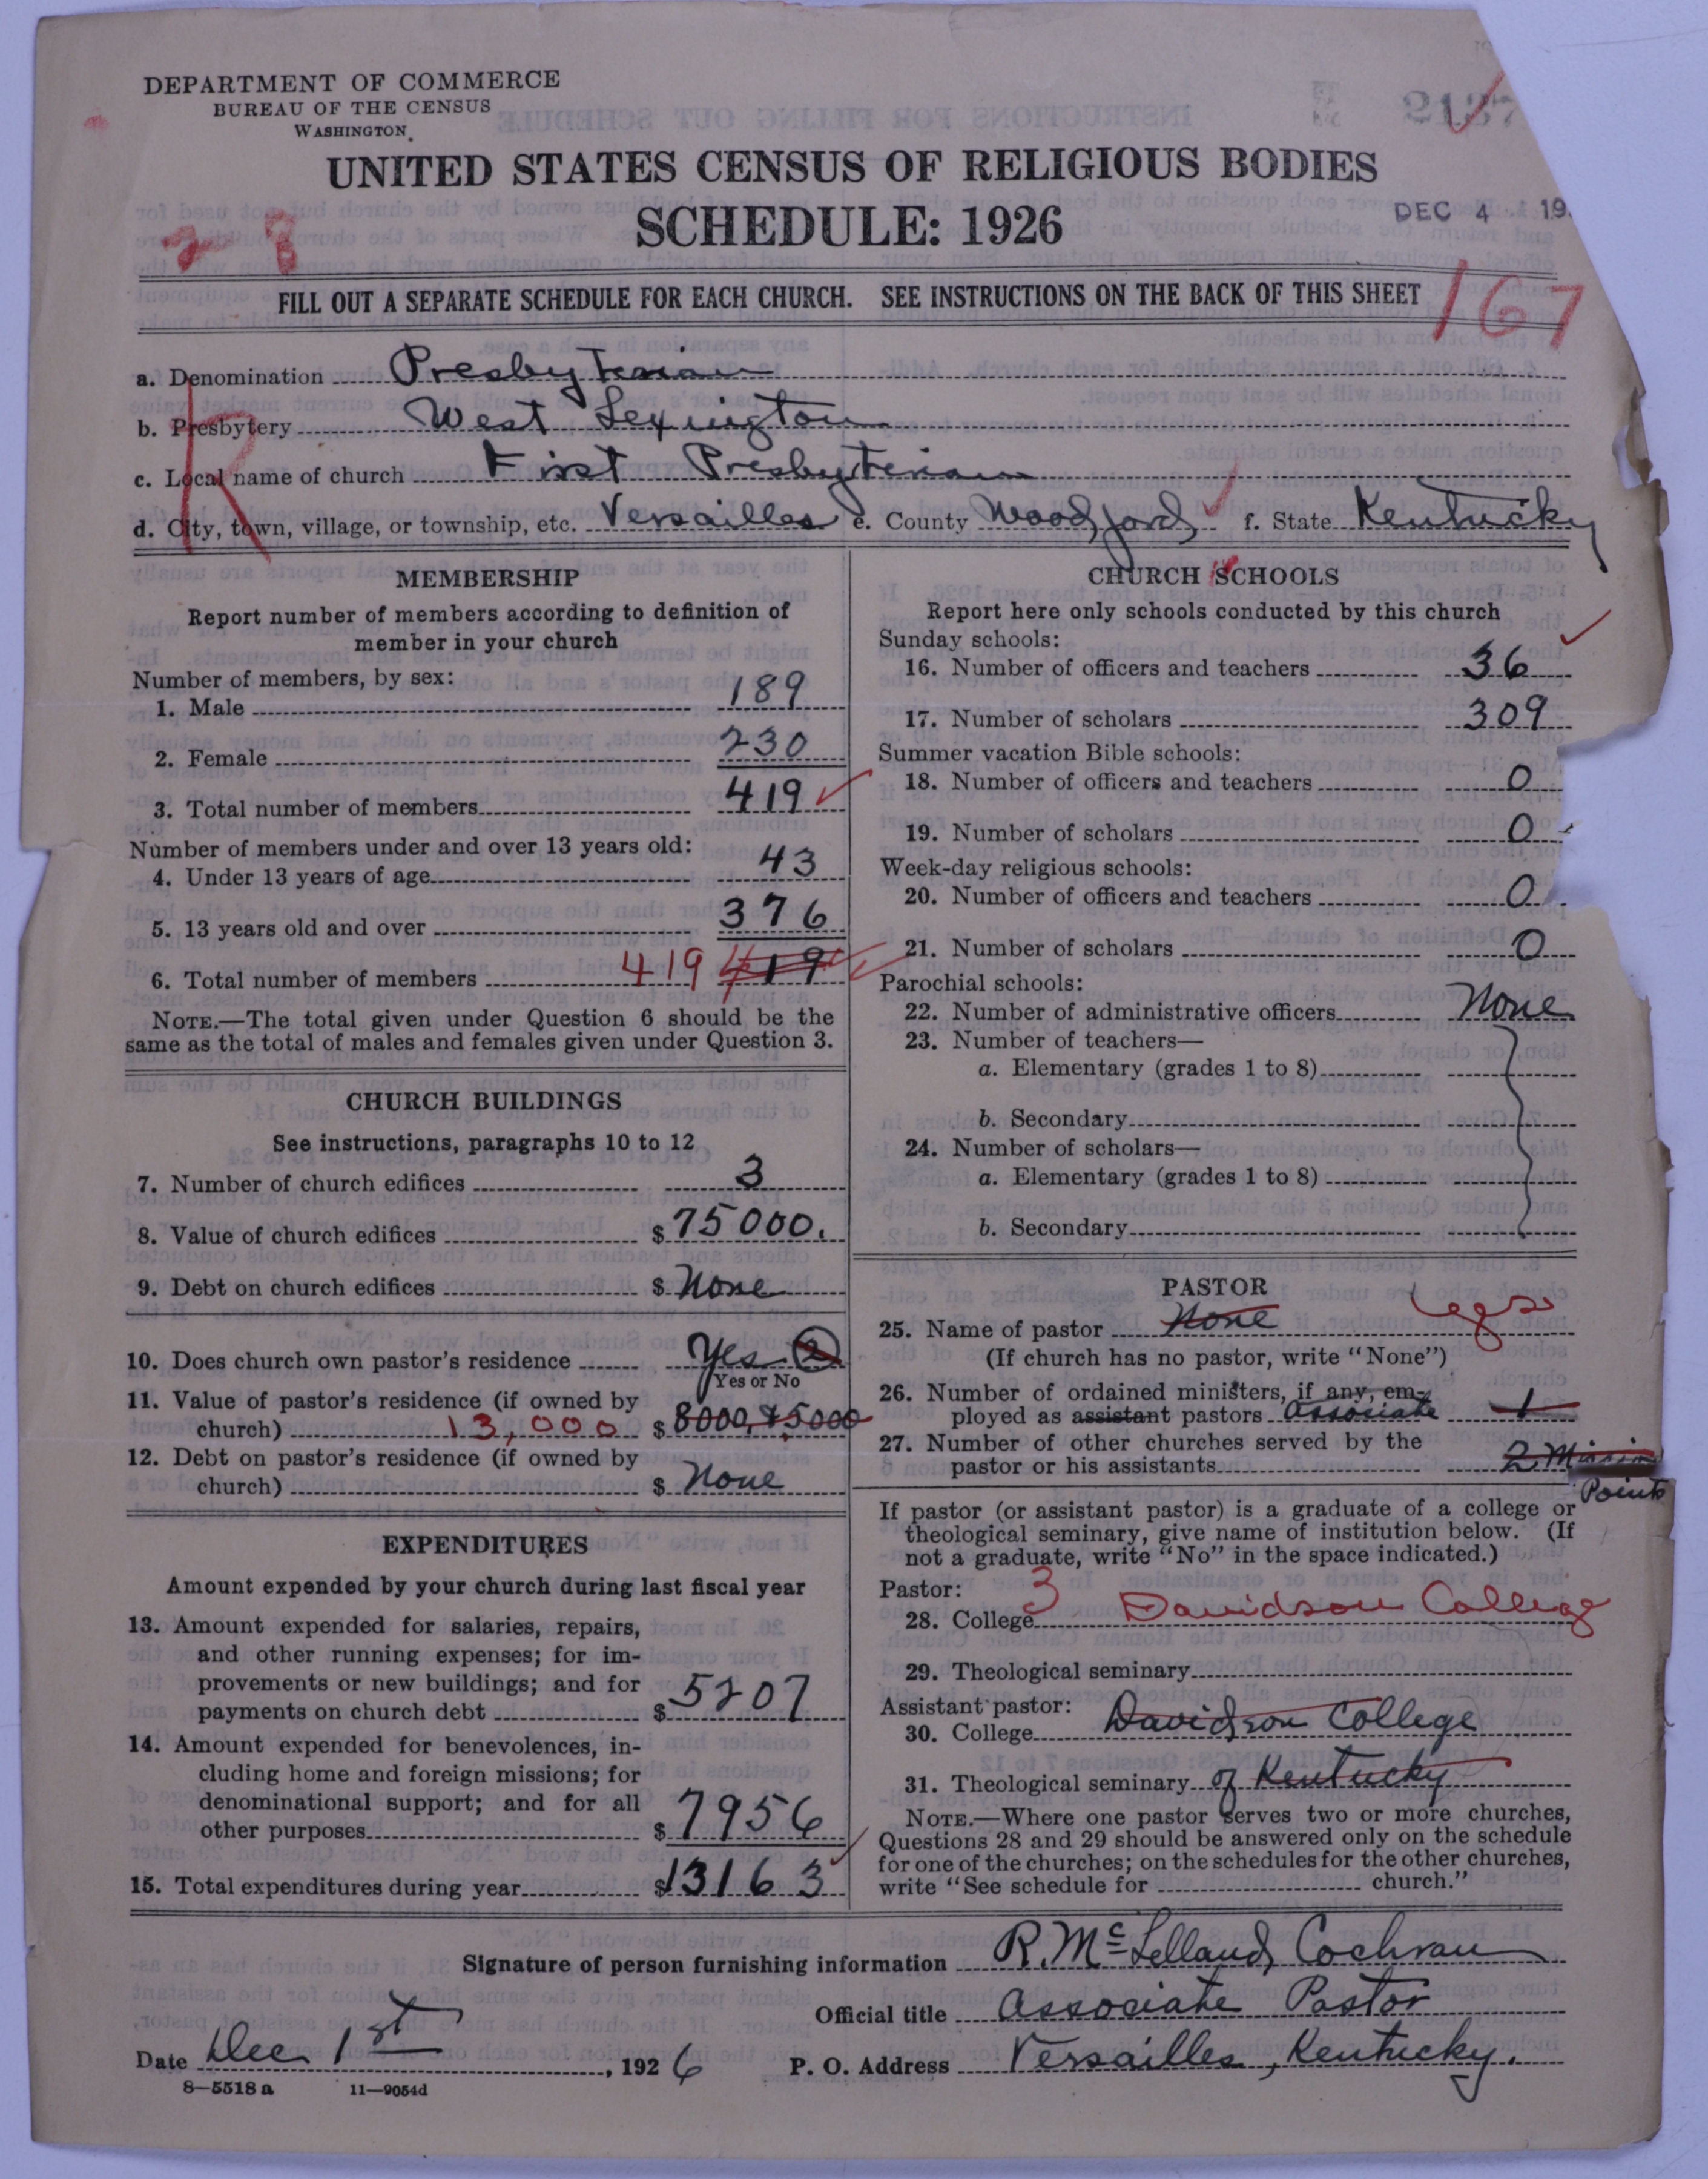 DEPARTMENT OF COMMERCE
BUREAU OF THE CENSUS
WASHINGTON
UNITED STATES CENSUS OF RELIGIOUS BODIES
SCHEDULE: 1926
DEC 4 19
28
FILL OUT A SEPARATE SCHEDULE FOR EACH CHURCH. SEE INSTRUCTIONS ON THE BACK OF THIS SHEET
167
a. Denomination Presbyterian
b. Presbytery West Lexington
c. Local name of church First Presbyterian
d. City, town, village, or township, etc. Versailles e. County Woodford f. State Kentucky
R
MEMBERSHIP
Report number of members according to definition of
member in your church
Number of members, by sex:
1. Male 189
2. Female 230
3. Total number of members 419
Number of members under and over 13 years old:
4. Under 13 years of age 43
5. 13 years old and over 376
6. Total number of members 419 419
NOTE.—The total given under Question 6 should be the
same as the total of males and females given under Question 3.
CHURCH BUILDINGS
See instructions, paragraphs 10 to 12
7. Number of church edifices 3
8. Value of church edifices $75000.
9. Debt on church edifices $ None
10. Does church own pastor's residence Yes 2
Yes or No
11. Value of pastor's residence (if owned by
church) 13,000 $ 8000, + 5000
12. Debt on pastor's residence (if owned by
church) $ None
EXPENDITURES
Amount expended by your church during last fiscal year
13. Amount expended for salaries, repairs,
and other running expenses; for im-
provements or new buildings; and for
payments on church debt $ 5207
14. Amount expended for benevolences, in-
cluding home and foreign missions; for
denominational support; and for all
other purposes $ 7956
15. Total expenditures during year $13163
CHURCH SCHOOLS
Report here only schools conducted by this church
Sunday schools:
16. Number of officers and teachers 36
17. Number of scholars 309
Summer vacation Bible schools:
18. Number of officers and teachers 0
19. Number of scholars 0
Week-day religious schools:
20. Number of officers and teachers 0
21. Number of scholars 0
Parochial schools:
22. Number of administrative officers None
23. Number of teachers—
a. Elementary (grades 1 to 8)
b. Secondary
24. Number of scholars—
a. Elementary (grades 1 to 8)
b. Secondary
PASTOR
25. Name of pastor None
(If church has no pastor, write "None")
26. Number of ordained ministers, if any, em-
ployed as assistant pastors Associate 1
27. Number of other churches served by the
pastor or his assistants 2 Mission
Points
If pastor (or assistant pastor) is a graduate of a college or
theological seminary, give name of institution below. (If
not a graduate, write "No" in the space indicated.)
Pastor:
28. College 3 Davidson College
29. Theological seminary
Assistant pastor:
30. College Davidson College
31. Theological seminary of Kentucky
NOTE.—Where one pastor serves two or more churches,
Questions 28 and 29 should be answered only on the schedule
for one of the churches; on the schedules for the other churches,
write "See schedule for church."
Signature of person furnishing information R. McLelland Cochran
Official title Associate Pastor
Date Dec 1st, 1926 P. O. Address Versailles, Kentucky.
8—5518 a 11—9054d